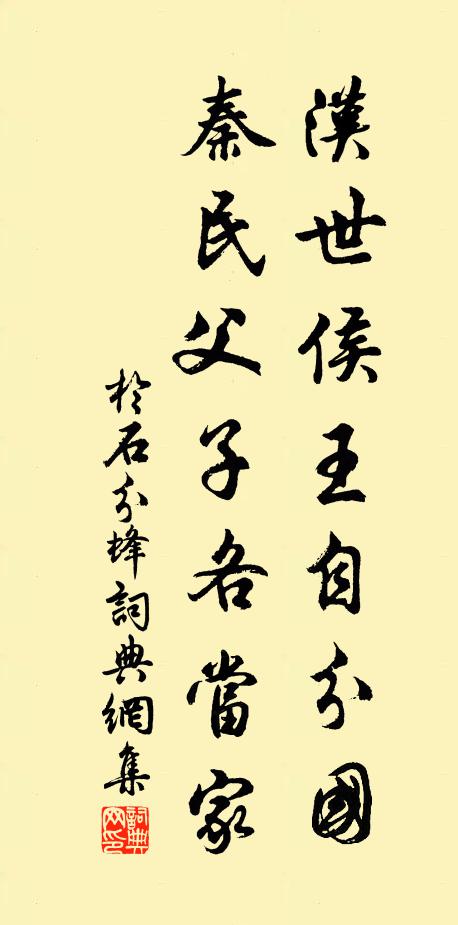 漢世侯王自分國
秦民父子各當家
於石分蜂詞典網集
詞典网印